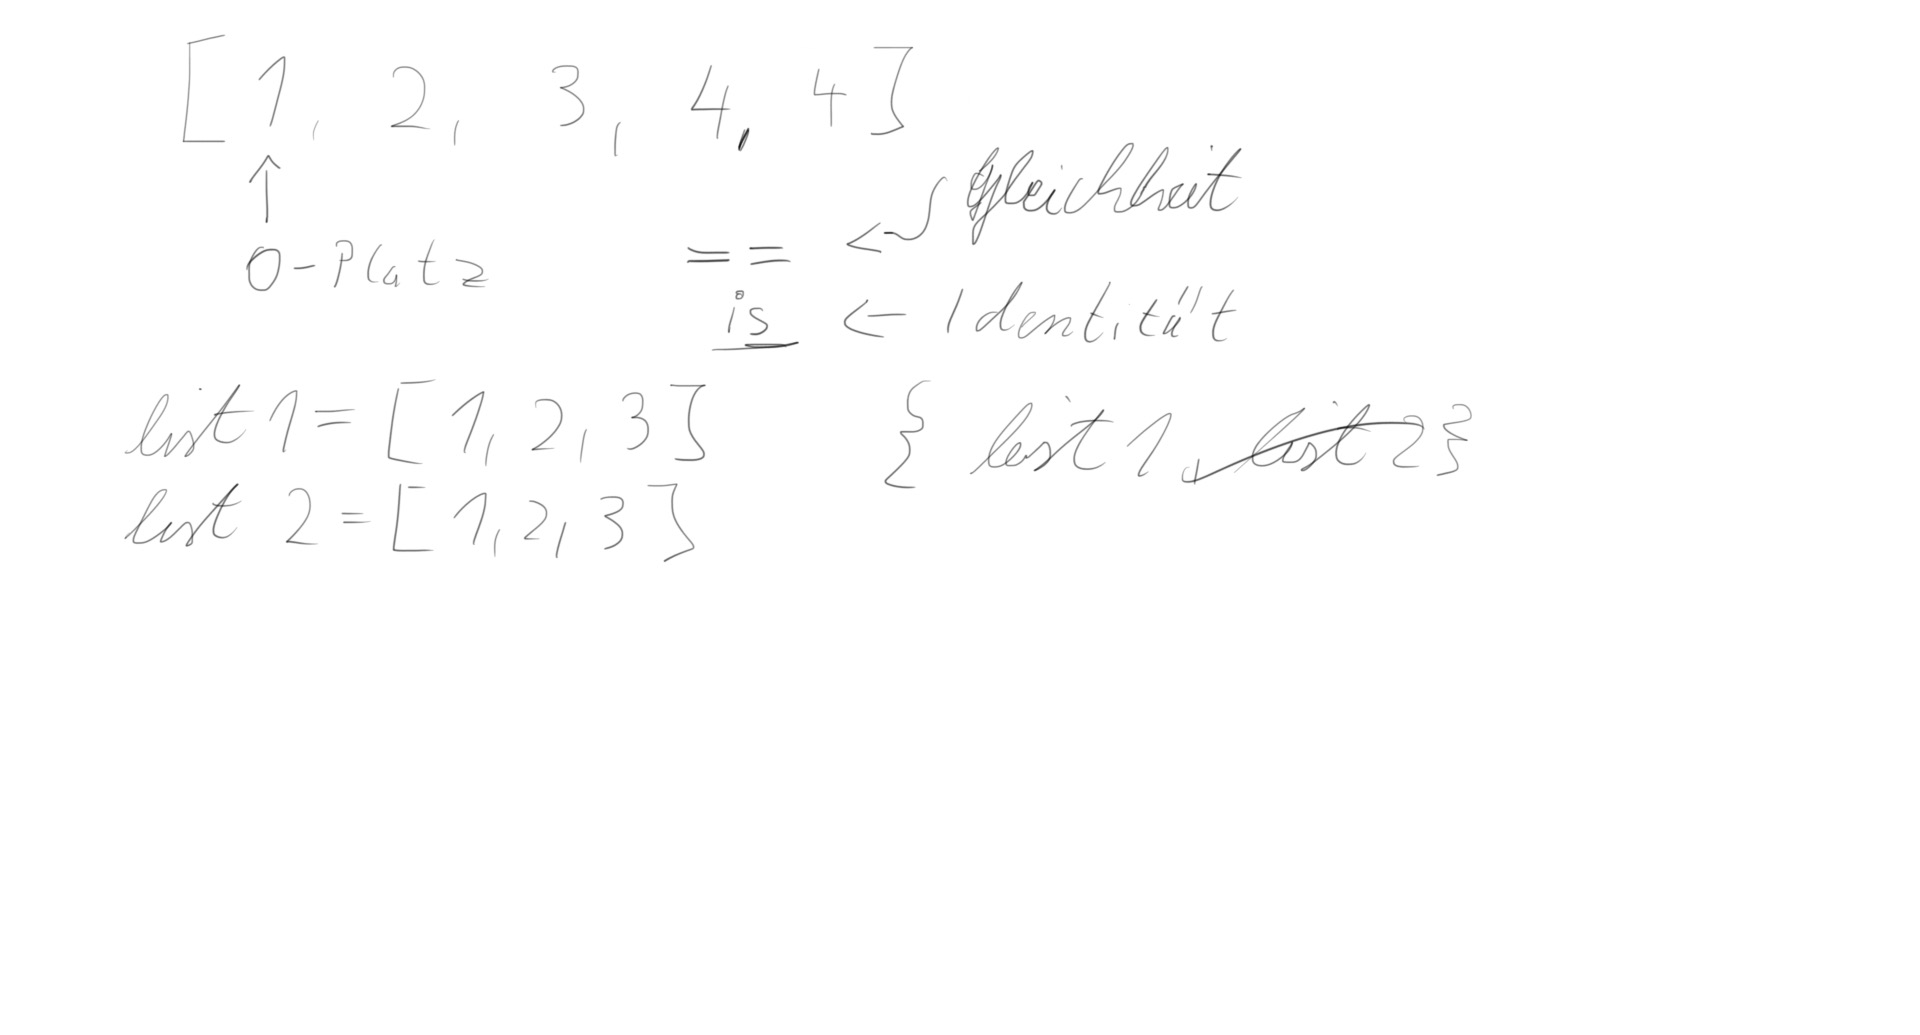 [1, 2, 3, 4, 4]
↑
0-Platz
== ← Gleichheit
is ← Identität
list 1 = [1, 2, 3]
{ list 1, list 2}
list 2 = [1, 2, 3]